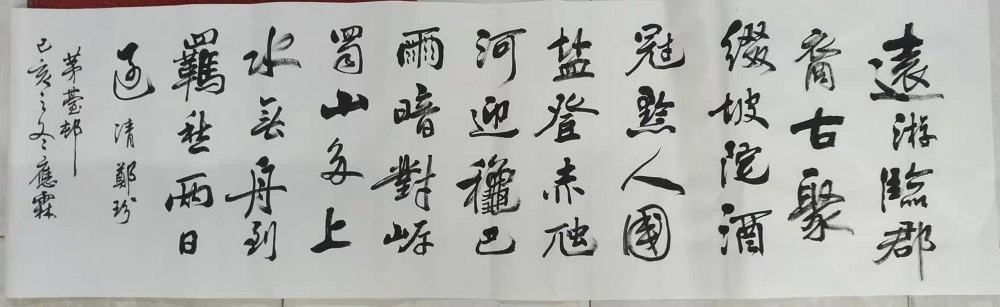 遠游臨郡
裔古聚
綴坡陀酒
冠黔人國
盐登赤虺
河迎龝巴
雨暗對岸
蜀山多上
水無舟到
羈愁兩日
過 清 鄭珍
茅臺邨
己亥之冬應霖